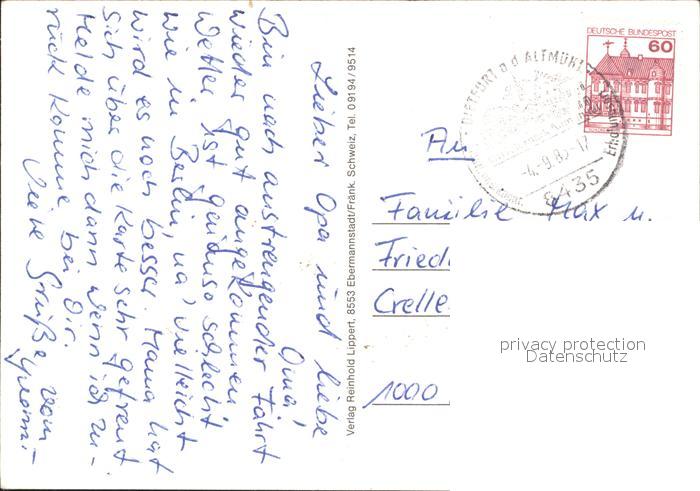 Lieber Opa und liebe
Oma,
Bin nach anstrengender Fahrt
wieder gut angekommen
Wetter ist genauso schlecht
wie in Berlin, na vielleicht
wird es noch besser. Mama hat
sich über die Karte sehr gefreut
Melde mich dann wenn ich zu-
rück komme bei Dir.
Liebe Grüße vom
Verlag Reinhold Lippert, 8553 Ebermannstadt/Fränk. Schweiz, Tel. 09194/9514
DEUTSCHE BUNDESPOST
60
DIETFURT a d ALTMÜHL
-4.-9.85-17
8435
An
Familie Max u.
Fried
Crelle
1000
privacy protection
Datenschutz